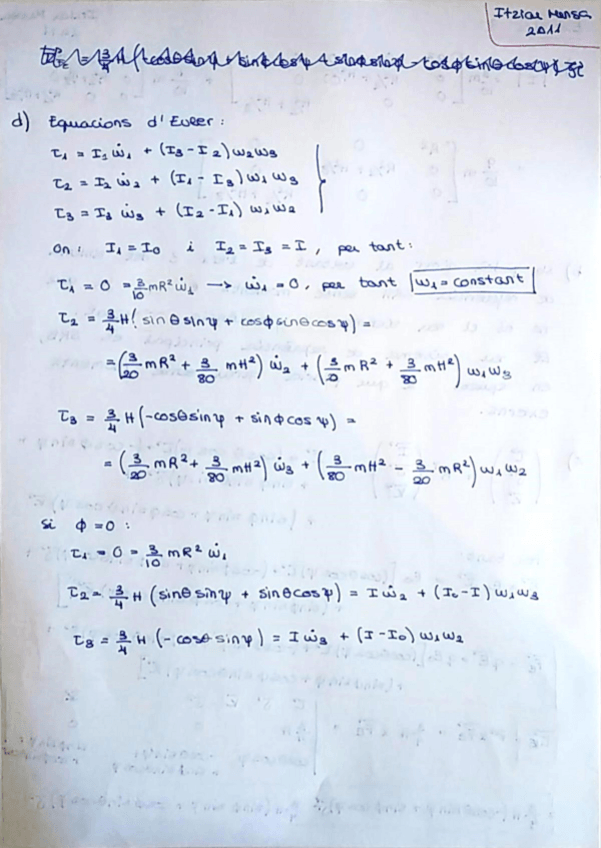 Itziar Mensa
2011
d) Equacions d'Euler:
τ₁ = I₁ω̇₁ + (I₃ - I₂)ω₂ω₃
τ₂ = I₂ω̇₂ + (I₁ - I₃)ω₁ω₃
τ₃ = I₃ω̇₃ + (I₂ - I₁)ω₁ω₂
On: I₁ = I₀ i I₂ = I₃ = I, per tant:
τ₁ = 0 = 3/10 mR² ω̇₁ → ω̇₁ = 0, per tant ω₁ = constant
τ₂ = 3/4 H (sinθ sinψ + cosφ sinθ cosψ) =
= (3/20 mR² + 3/80 mH²) ω̇₂ + (mR² + 3/80 mH²) ω₁ω₃
τ₃ = 3/4 H (-cosθ sinψ + sinφ cosψ) =
= (3/20 mR² + 3/80 mH²) ω̇₃ + (3/80 mH² - 3/20 mR²) ω₁ω₂
Si φ = 0:
τ₁ = 0 = 3/10 mR² ω̇₁
τ₂ = 3/4 H (sinθ sinψ + sinθ cosψ) = Iω̇₂ + (I₀ - I) ω₁ω₃
τ₃ = 3/4 H (-cosθ sinψ) = Iω̇₃ + (I - I₀) ω₁ω₂